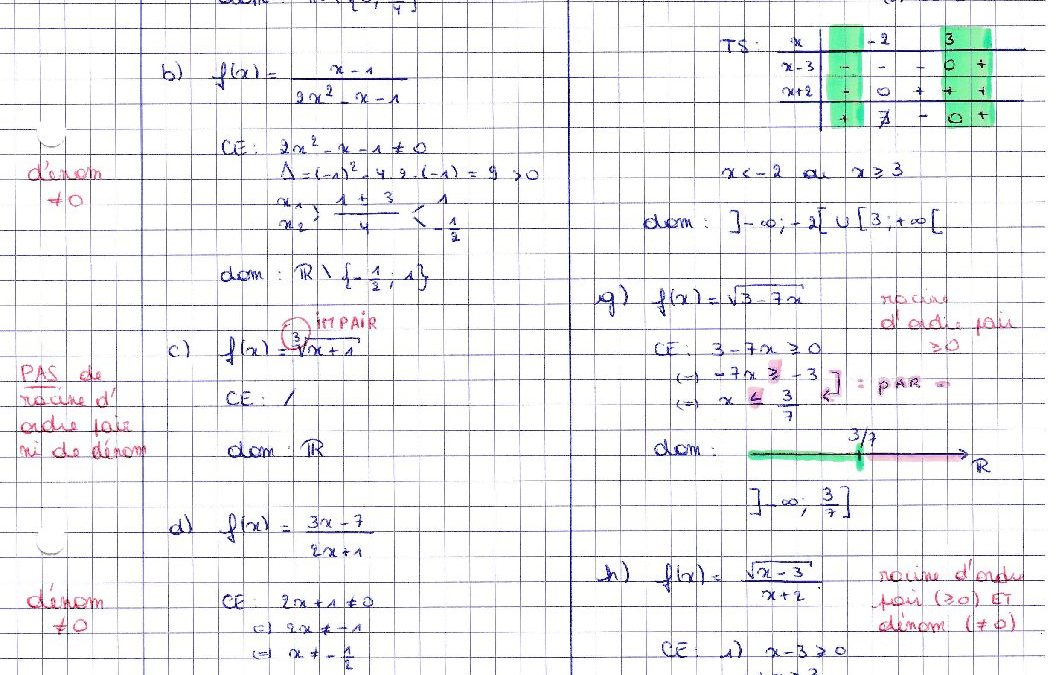 b) f(x) = \frac{x-1}{2x² - x - 1}
dénom
≠0
CE : 2x² - x - 1 ≠ 0
Δ = (-1)² - 4.2.(-1) = 9 > 0
x₁
x₂ > \frac{1 ± 3}{4} < 1
-\frac{1}{2}
dom : ℝ \ {-\frac{1}{2} ; 1}
IMPAIR
c) f(x) = ∛(x+1)
PAS de
racine d'
ordre pair
ni de dénom
CE : /
dom : ℝ
d) f(x) = \frac{3x-7}{2x+1}
dénom
≠0
CE : 2x+1 ≠ 0
(=) 2x ≠ -1
(=) x ≠ -\frac{1}{2}
TS : x | -2 3
x-3 | - - - 0 +
x+2 | - 0 + + +
+ ∄ - 0 +
x < -2 ou x ≥ 3
dom : ]-∞ ; -2[ ∪ [3 ; +∞[
g) f(x) = √(3-7x)
racine
d'ordre pair
≥0
CE : 3-7x ≥ 0
(=) -7x ≥ -3
(=) x ≤ \frac{3}{7}
] : PAR -
dom : 3/7 ℝ
]-∞ ; \frac{3}{7}]
h) f(x) = \frac{√(x-3)}{x+2}
racine d'ordre
pair (≥0) ET
dénom (≠0)
CE : 1) x-3 ≥ 0